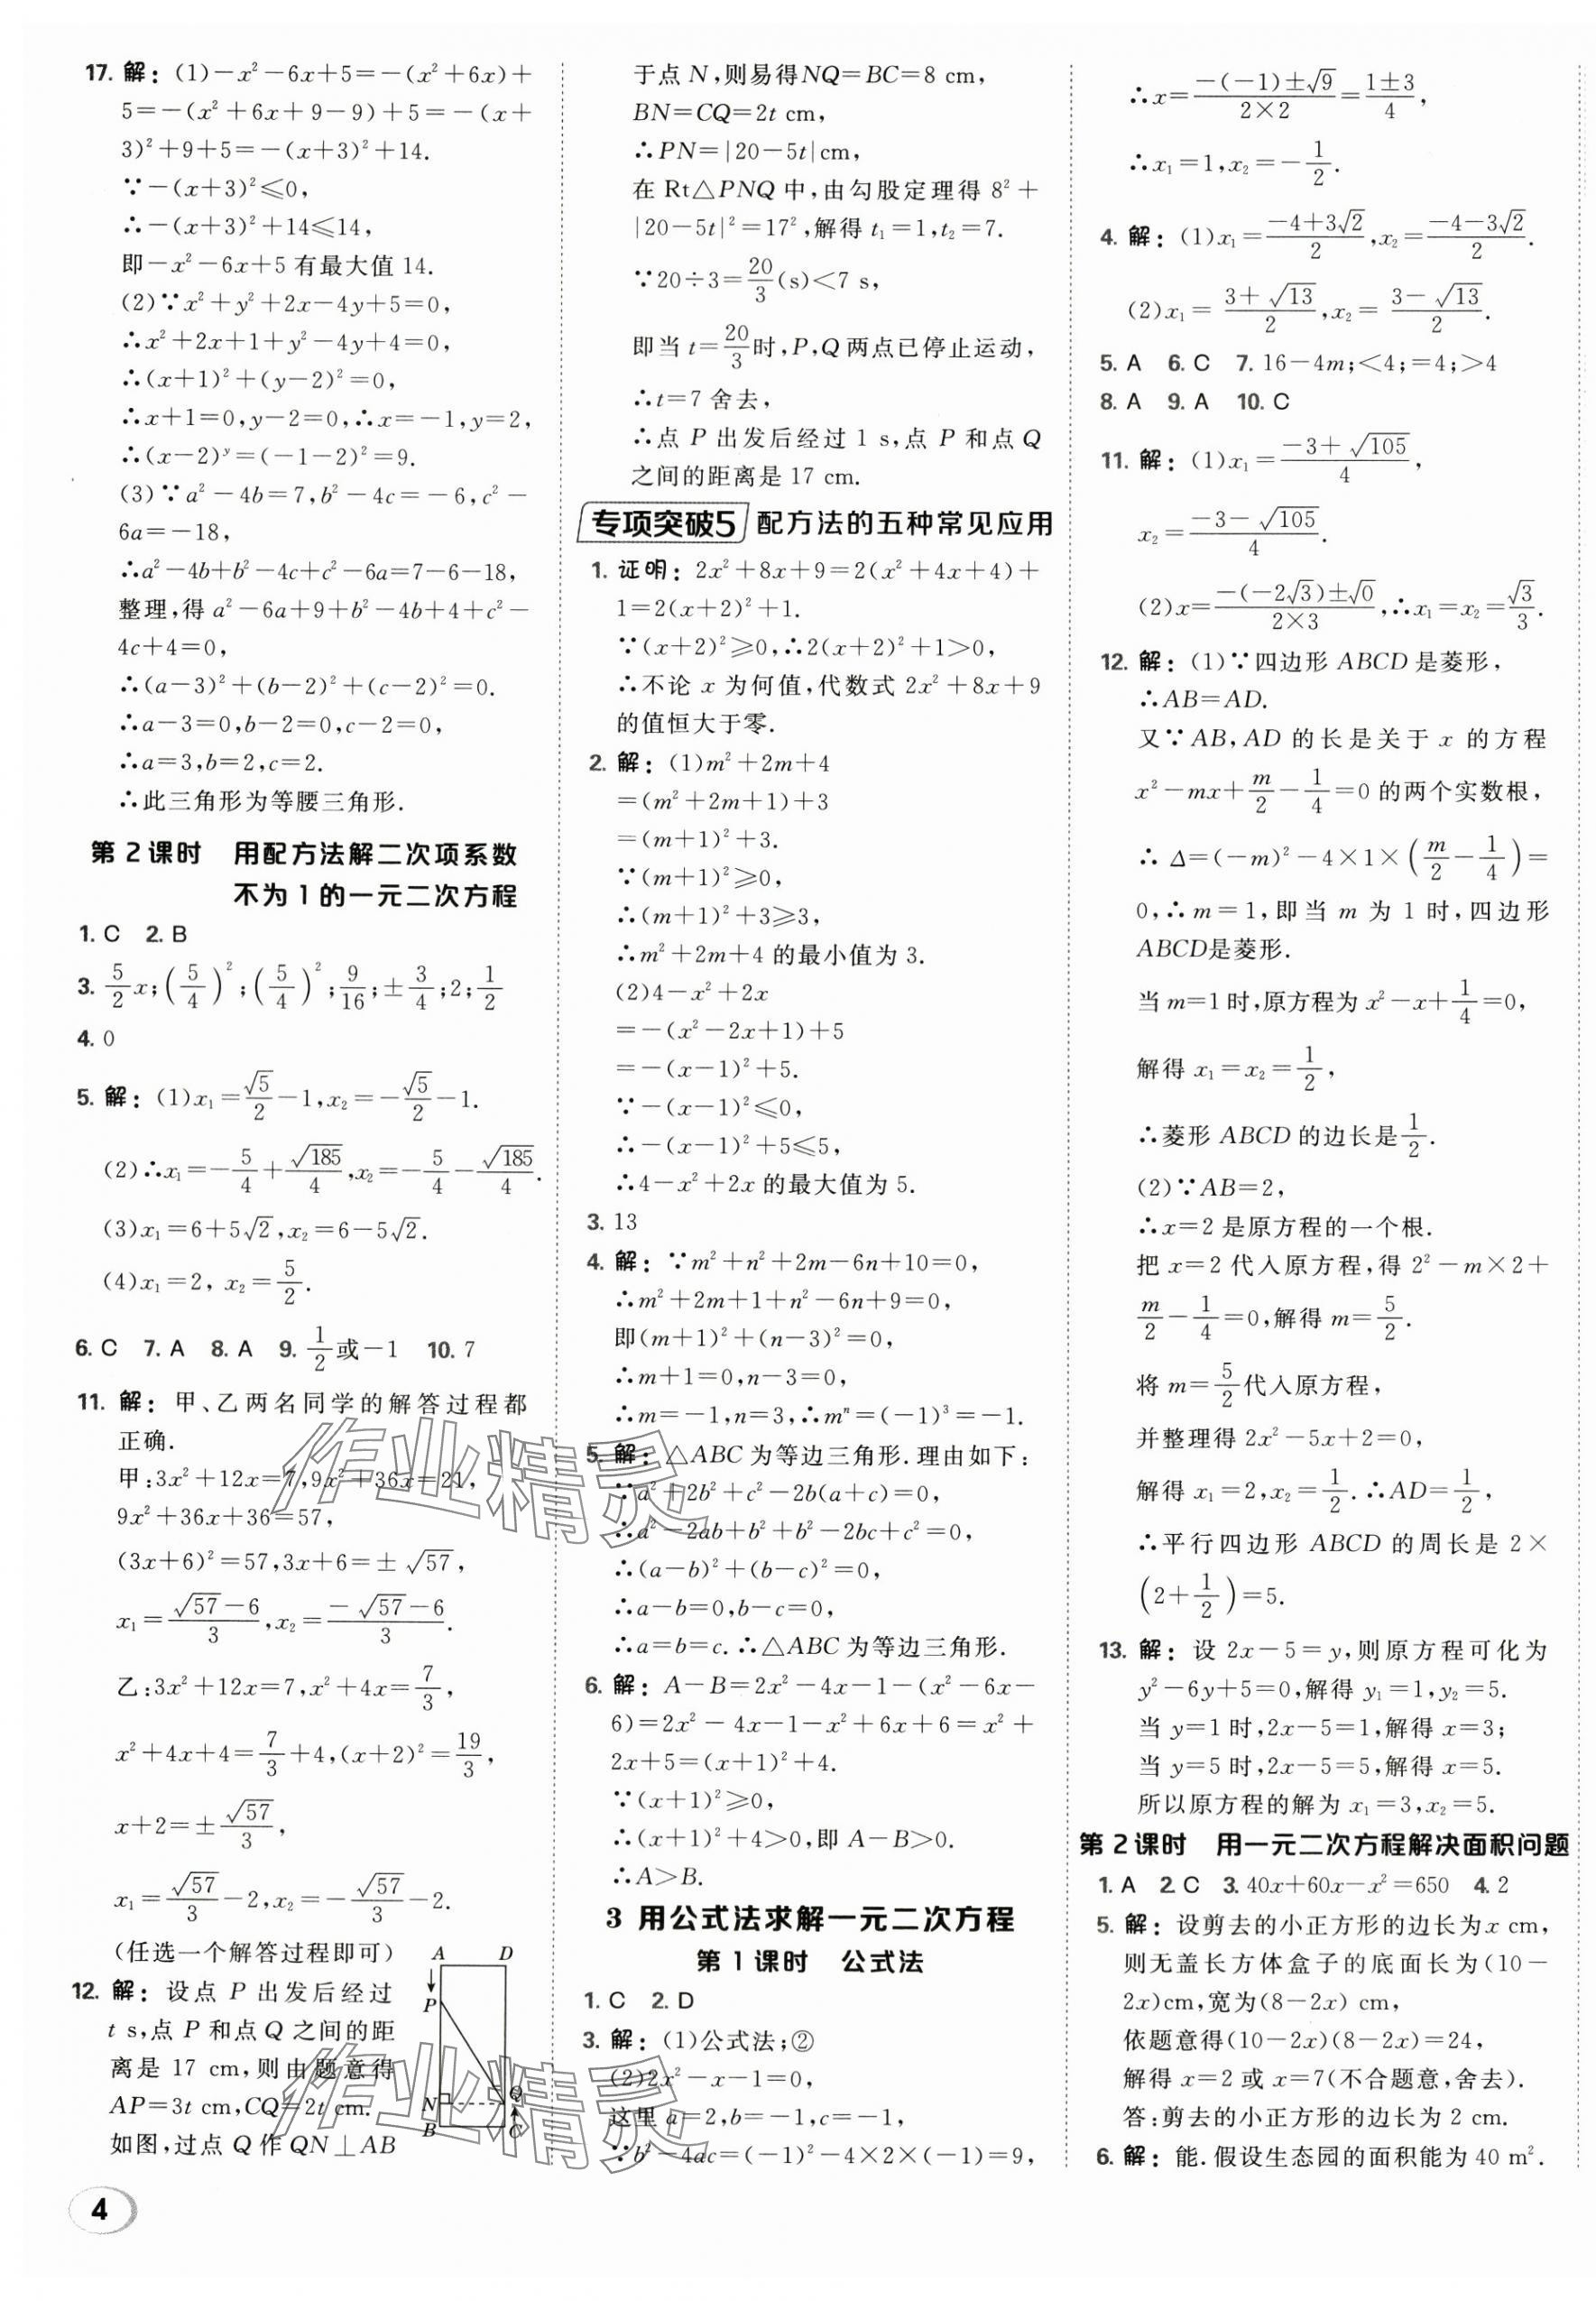 17. 解：(1)−x²−6x+5=−(x²+6x)+
5=−(x²+6x+9−9)+5=−(x+
3)²+9+5=−(x+3)²+14.
∵−(x+3)²≤0,
∴−(x+3)²+14≤14,
即−x²−6x+5有最大值14.
(2)∵x²+y²+2x−4y+5=0,
∴x²+2x+1+y²−4y+4=0,
∴(x+1)²+(y−2)²=0,
∴x+1=0,y−2=0,∴x=−1,y=2,
∴(x−2)ʸ=(−1−2)²=9.
(3)∵a²−4b=7,b²−4c=−6,c²−
6a=−18,
∴a²−4b+b²−4c+c²−6a=7−6−18,
整理,得a²−6a+9+b²−4b+4+c²−
4c+4=0,
∴(a−3)²+(b−2)²+(c−2)²=0.
∴a−3=0,b−2=0,c−2=0,
∴a=3,b=2,c=2.
∴此三角形为等腰三角形.
第2课时 用配方法解二次项系数
不为1的一元二次方程
1. C 2. B
3. 5/2 x;(5/4)²;(5/4)²;9/16;±3/4;2;1/2
4. 0
5. 解：(1)x₁=√5/2−1,x₂=−√5/2−1.
(2)∴x₁=−5/4+√185/4,x₂=−5/4−√185/4.
(3)x₁=6+5√2,x₂=6−5√2.
(4)x₁=2, x₂=5/2.
6. C 7. A 8. A 9. 1/2或−1 10. 7
11. 解：甲、乙两名同学的解答过程都
正确.
甲:3x²+12x=7,9x²+36x=21,
9x²+36x+36=57,
(3x+6)²=57,3x+6=±√57,
x₁=(√57−6)/3,x₂=(−√57−6)/3.
乙:3x²+12x=7,x²+4x=7/3,
x²+4x+4=7/3+4,(x+2)²=19/3,
x+2=±√57/3,
x₁=√57/3−2,x₂=−√57/3−2.
(任选一个解答过程即可)
12. 解：设点P出发后经过
t s,点P和点Q之间的距
离是17 cm,则由题意得
AP=3t cm,CQ=2t cm.
如图,过点Q作QN⊥AB
A D
P
N Q
B C
4
于点N,则易得NQ=BC=8 cm,
BN=CQ=2t cm,
∴PN=|20−5t|cm,
在Rt△PNQ中,由勾股定理得8²+
|20−5t|²=17²,解得t₁=1,t₂=7.
∵20÷3=20/3(s)<7 s,
即当t=20/3时,P,Q两点已停止运动,
∴t=7舍去,
∴点P出发后经过1 s,点P和点Q
之间的距离是17 cm.
专项突破5 配方法的五种常见应用
1. 证明：2x²+8x+9=2(x²+4x+4)+
1=2(x+2)²+1.
∵(x+2)²≥0,∴2(x+2)²+1>0,
∴不论x为何值,代数式2x²+8x+9
的值恒大于零.
2. 解：(1)m²+2m+4
=(m²+2m+1)+3
=(m+1)²+3.
∵(m+1)²≥0,
∴(m+1)²+3≥3,
∴m²+2m+4的最小值为3.
(2)4−x²+2x
=−(x²−2x+1)+5
=−(x−1)²+5.
∵−(x−1)²≤0,
∴−(x−1)²+5≤5,
∴4−x²+2x的最大值为5.
3. 13
4. 解：∵m²+n²+2m−6n+10=0,
∴m²+2m+1+n²−6n+9=0,
即(m+1)²+(n−3)²=0,
∴m+1=0,n−3=0,
∴m=−1,n=3,∴mⁿ=(−1)³=−1.
5. 解：△ABC为等边三角形.理由如下:
∵a²+2b²+c²−2b(a+c)=0,
∴a²−2ab+b²+b²−2bc+c²=0,
∴(a−b)²+(b−c)²=0,
∴a−b=0,b−c=0,
∴a=b=c.∴△ABC为等边三角形.
6. 解：A−B=2x²−4x−1−(x²−6x−
6)=2x²−4x−1−x²+6x+6=x²+
2x+5=(x+1)²+4.
∵(x+1)²≥0,
∴(x+1)²+4>0,即A−B>0.
∴A>B.
3 用公式法求解一元二次方程
第1课时 公式法
1. C 2. D
3. 解：(1)公式法;②
(2)2x²−x−1=0,
这里a=2,b=−1,c=−1,
∵b²−4ac=(−1)²−4×2×(−1)=9,
∴x=(−(−1)±√9)/(2×2)=(1±3)/4,
∴x₁=1,x₂=−1/2.
4. 解：(1)x₁=(−4+3√2)/2,x₂=(−4−3√2)/2.
(2)x₁=(3+√13)/2,x₂=(3−√13)/2.
5. A 6. C 7. 16−4m;<4;=4;>4
8. A 9. A 10. C
11. 解：(1)x₁=(−3+√105)/4,
x₂=(−3−√105)/4.
(2)x=(−(−2√3)±√0)/(2×3),∴x₁=x₂=√3/3.
12. 解：(1)∵四边形ABCD是菱形,
∴AB=AD.
又∵AB,AD的长是关于x的方程
x²−mx+m/2−1/4=0的两个实数根,
∴Δ=(−m)²−4×1×(m/2−1/4)=
0,∴m=1,即当m为1时,四边形
ABCD是菱形.
当m=1时,原方程为x²−x+1/4=0,
解得x₁=x₂=1/2,
∴菱形ABCD的边长是1/2.
(2)∵AB=2,
∴x=2是原方程的一个根.
把x=2代入原方程,得2²−m×2+
m/2−1/4=0,解得m=5/2.
将m=5/2代入原方程,
并整理得2x²−5x+2=0,
解得x₁=2,x₂=1/2.∴AD=1/2,
∴平行四边形ABCD的周长是2×
(2+1/2)=5.
13. 解：设2x−5=y,则原方程可化为
y²−6y+5=0,解得y₁=1,y₂=5.
当y=1时,2x−5=1,解得x=3;
当y=5时,2x−5=5,解得x=5.
所以原方程的解为x₁=3,x₂=5.
第2课时 用一元二次方程解决面积问题
1. A 2. C 3. 40x+60x−x²=650 4. 2
5. 解：设剪去的小正方形的边长为x cm,
则无盖长方体盒子的底面长为(10−
2x)cm,宽为(8−2x) cm,
依题意得(10−2x)(8−2x)=24,
解得x=2或x=7(不合题意,舍去).
答:剪去的小正方形的边长为2 cm.
6. 解：能.假设生态园的面积能为40 m².
作业精灵
作业精灵